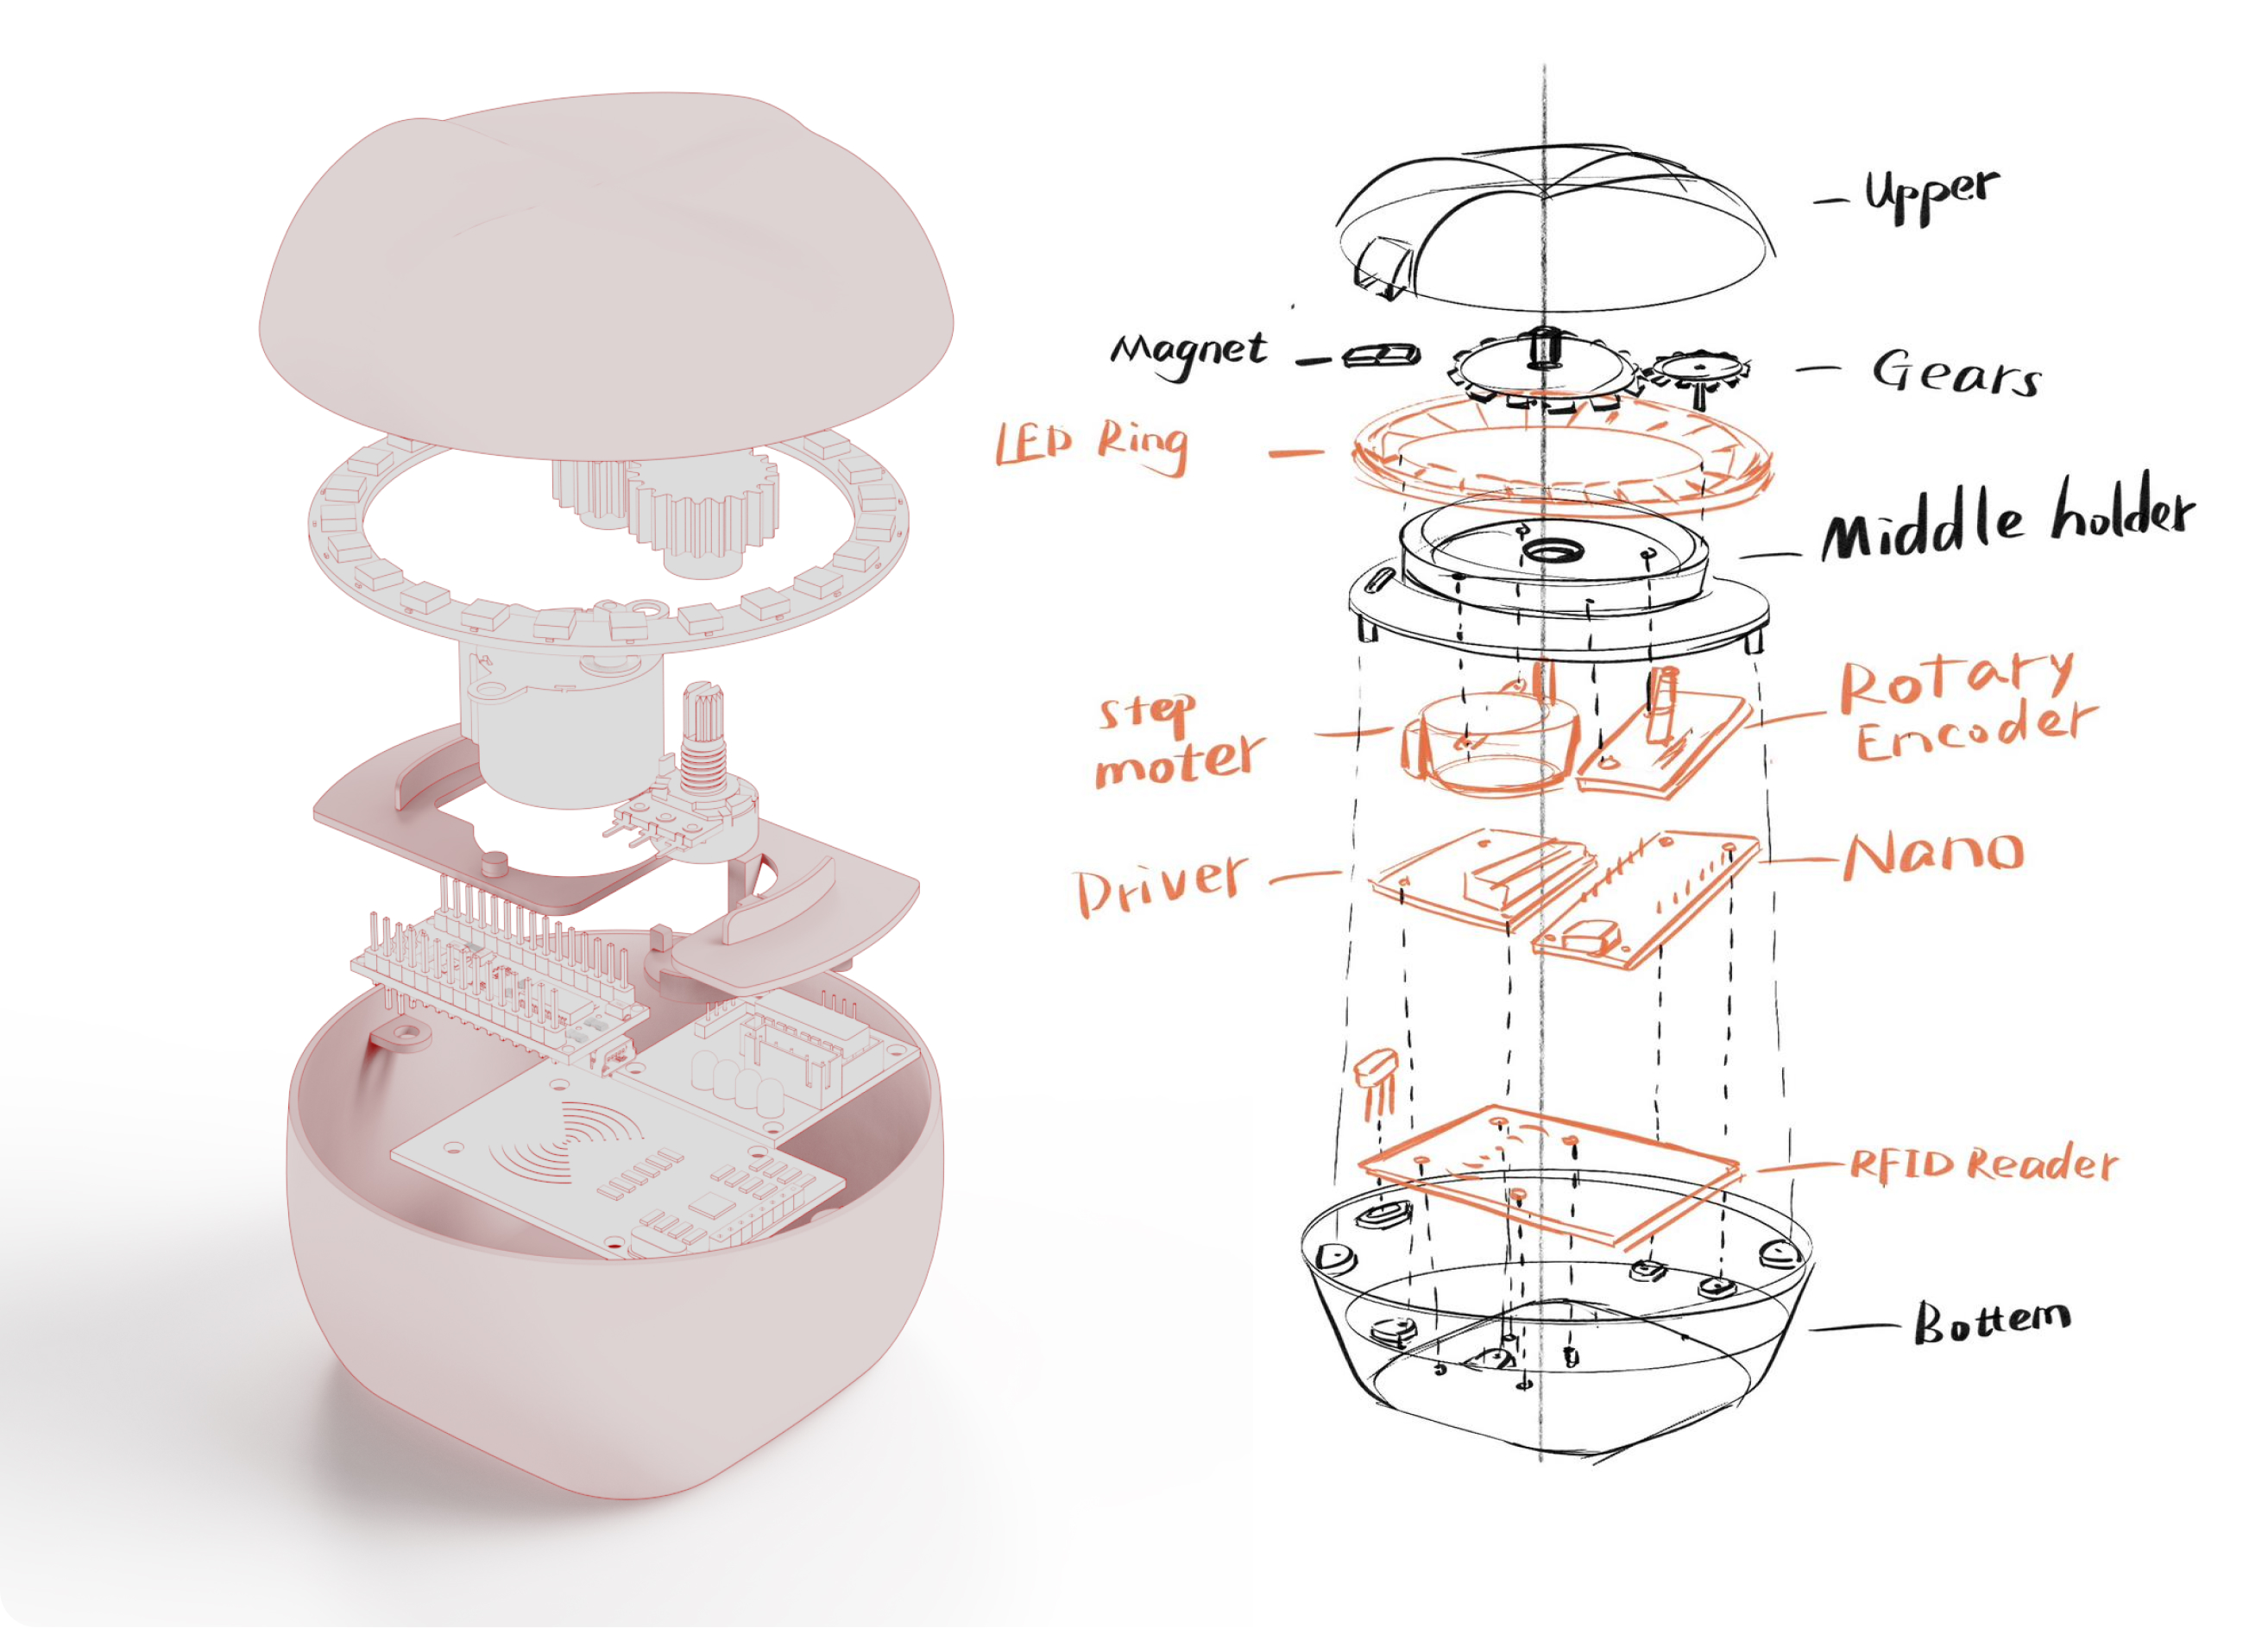 Upper
Magnet
Gears
LED Ring
Middle holder
Step
moter
Rotary
Encoder
Driver
Nano
RFID Reader
Bottem